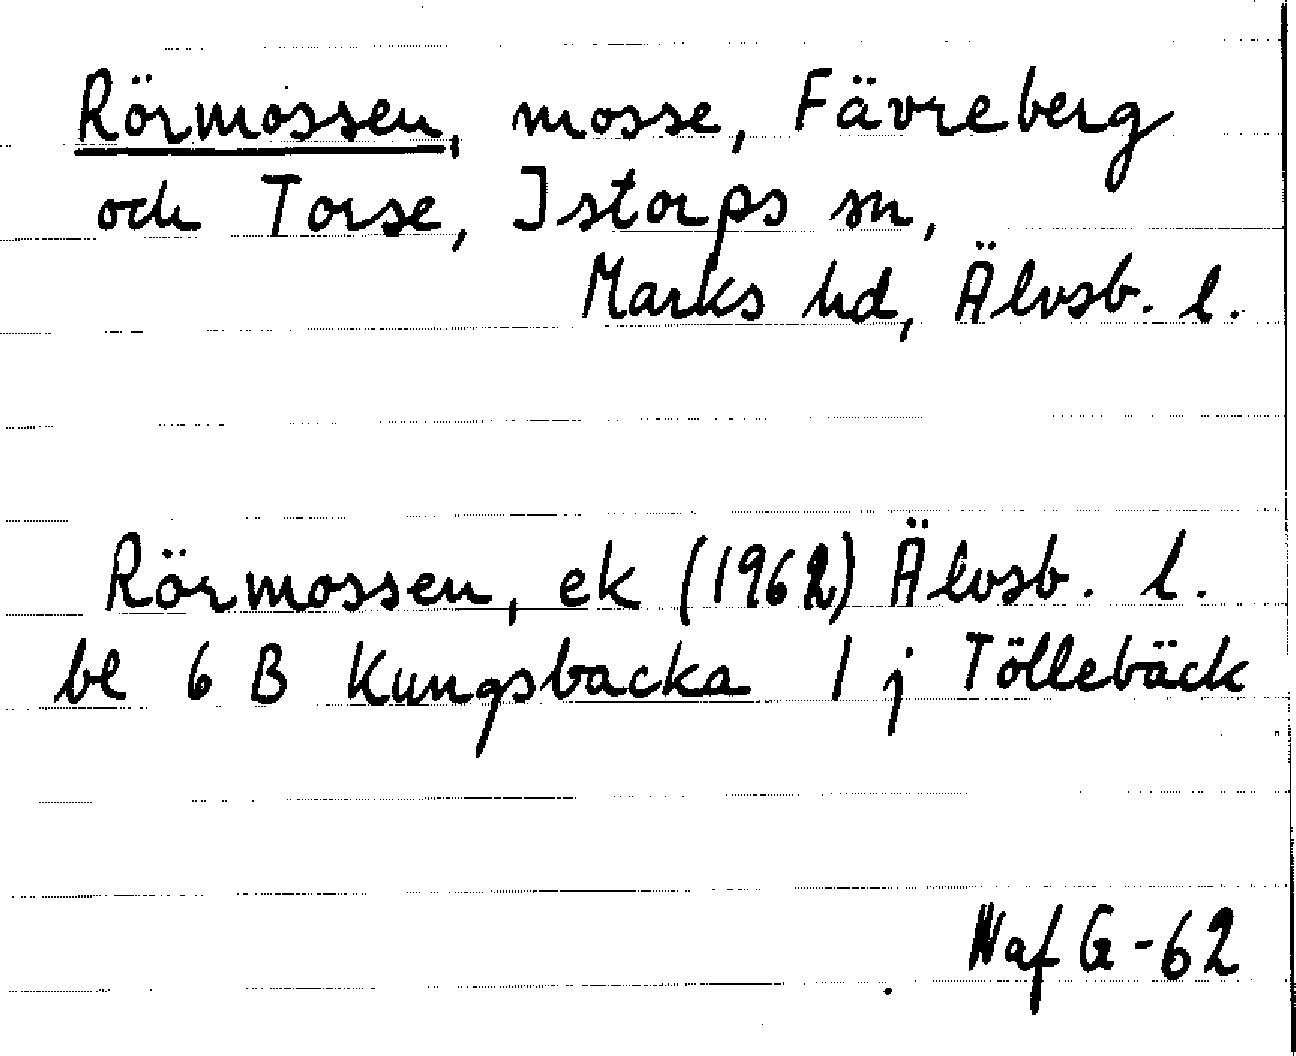 Rörmossen, mosse, Fävreberg
och Torse, Istorps sn,
Marks hd, Älvsb. l.
Rörmossen, ek (1962) Älvsb. l.
bl 6 B Kungsbacka 1 j Töllebäck
NafG-62